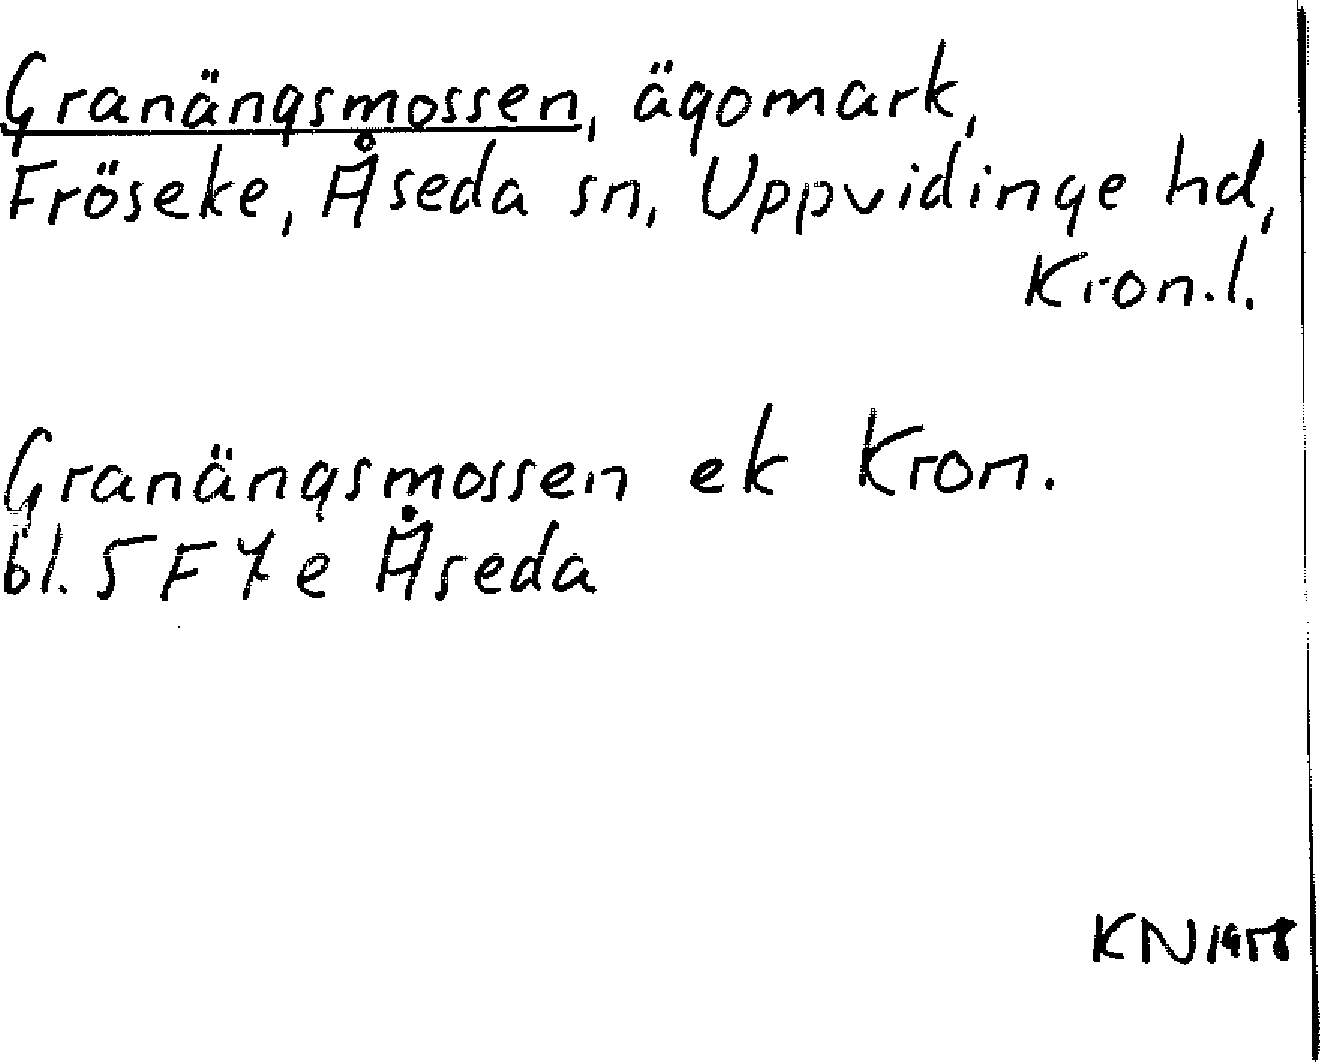 Granängsmossen, ägomark,
Fröseke, Åseda sn, Uppvidinge hd,
Kron.l.
Granängsmossen ek Kron.
bl. 5 F 7 e Åseda
KN 1958